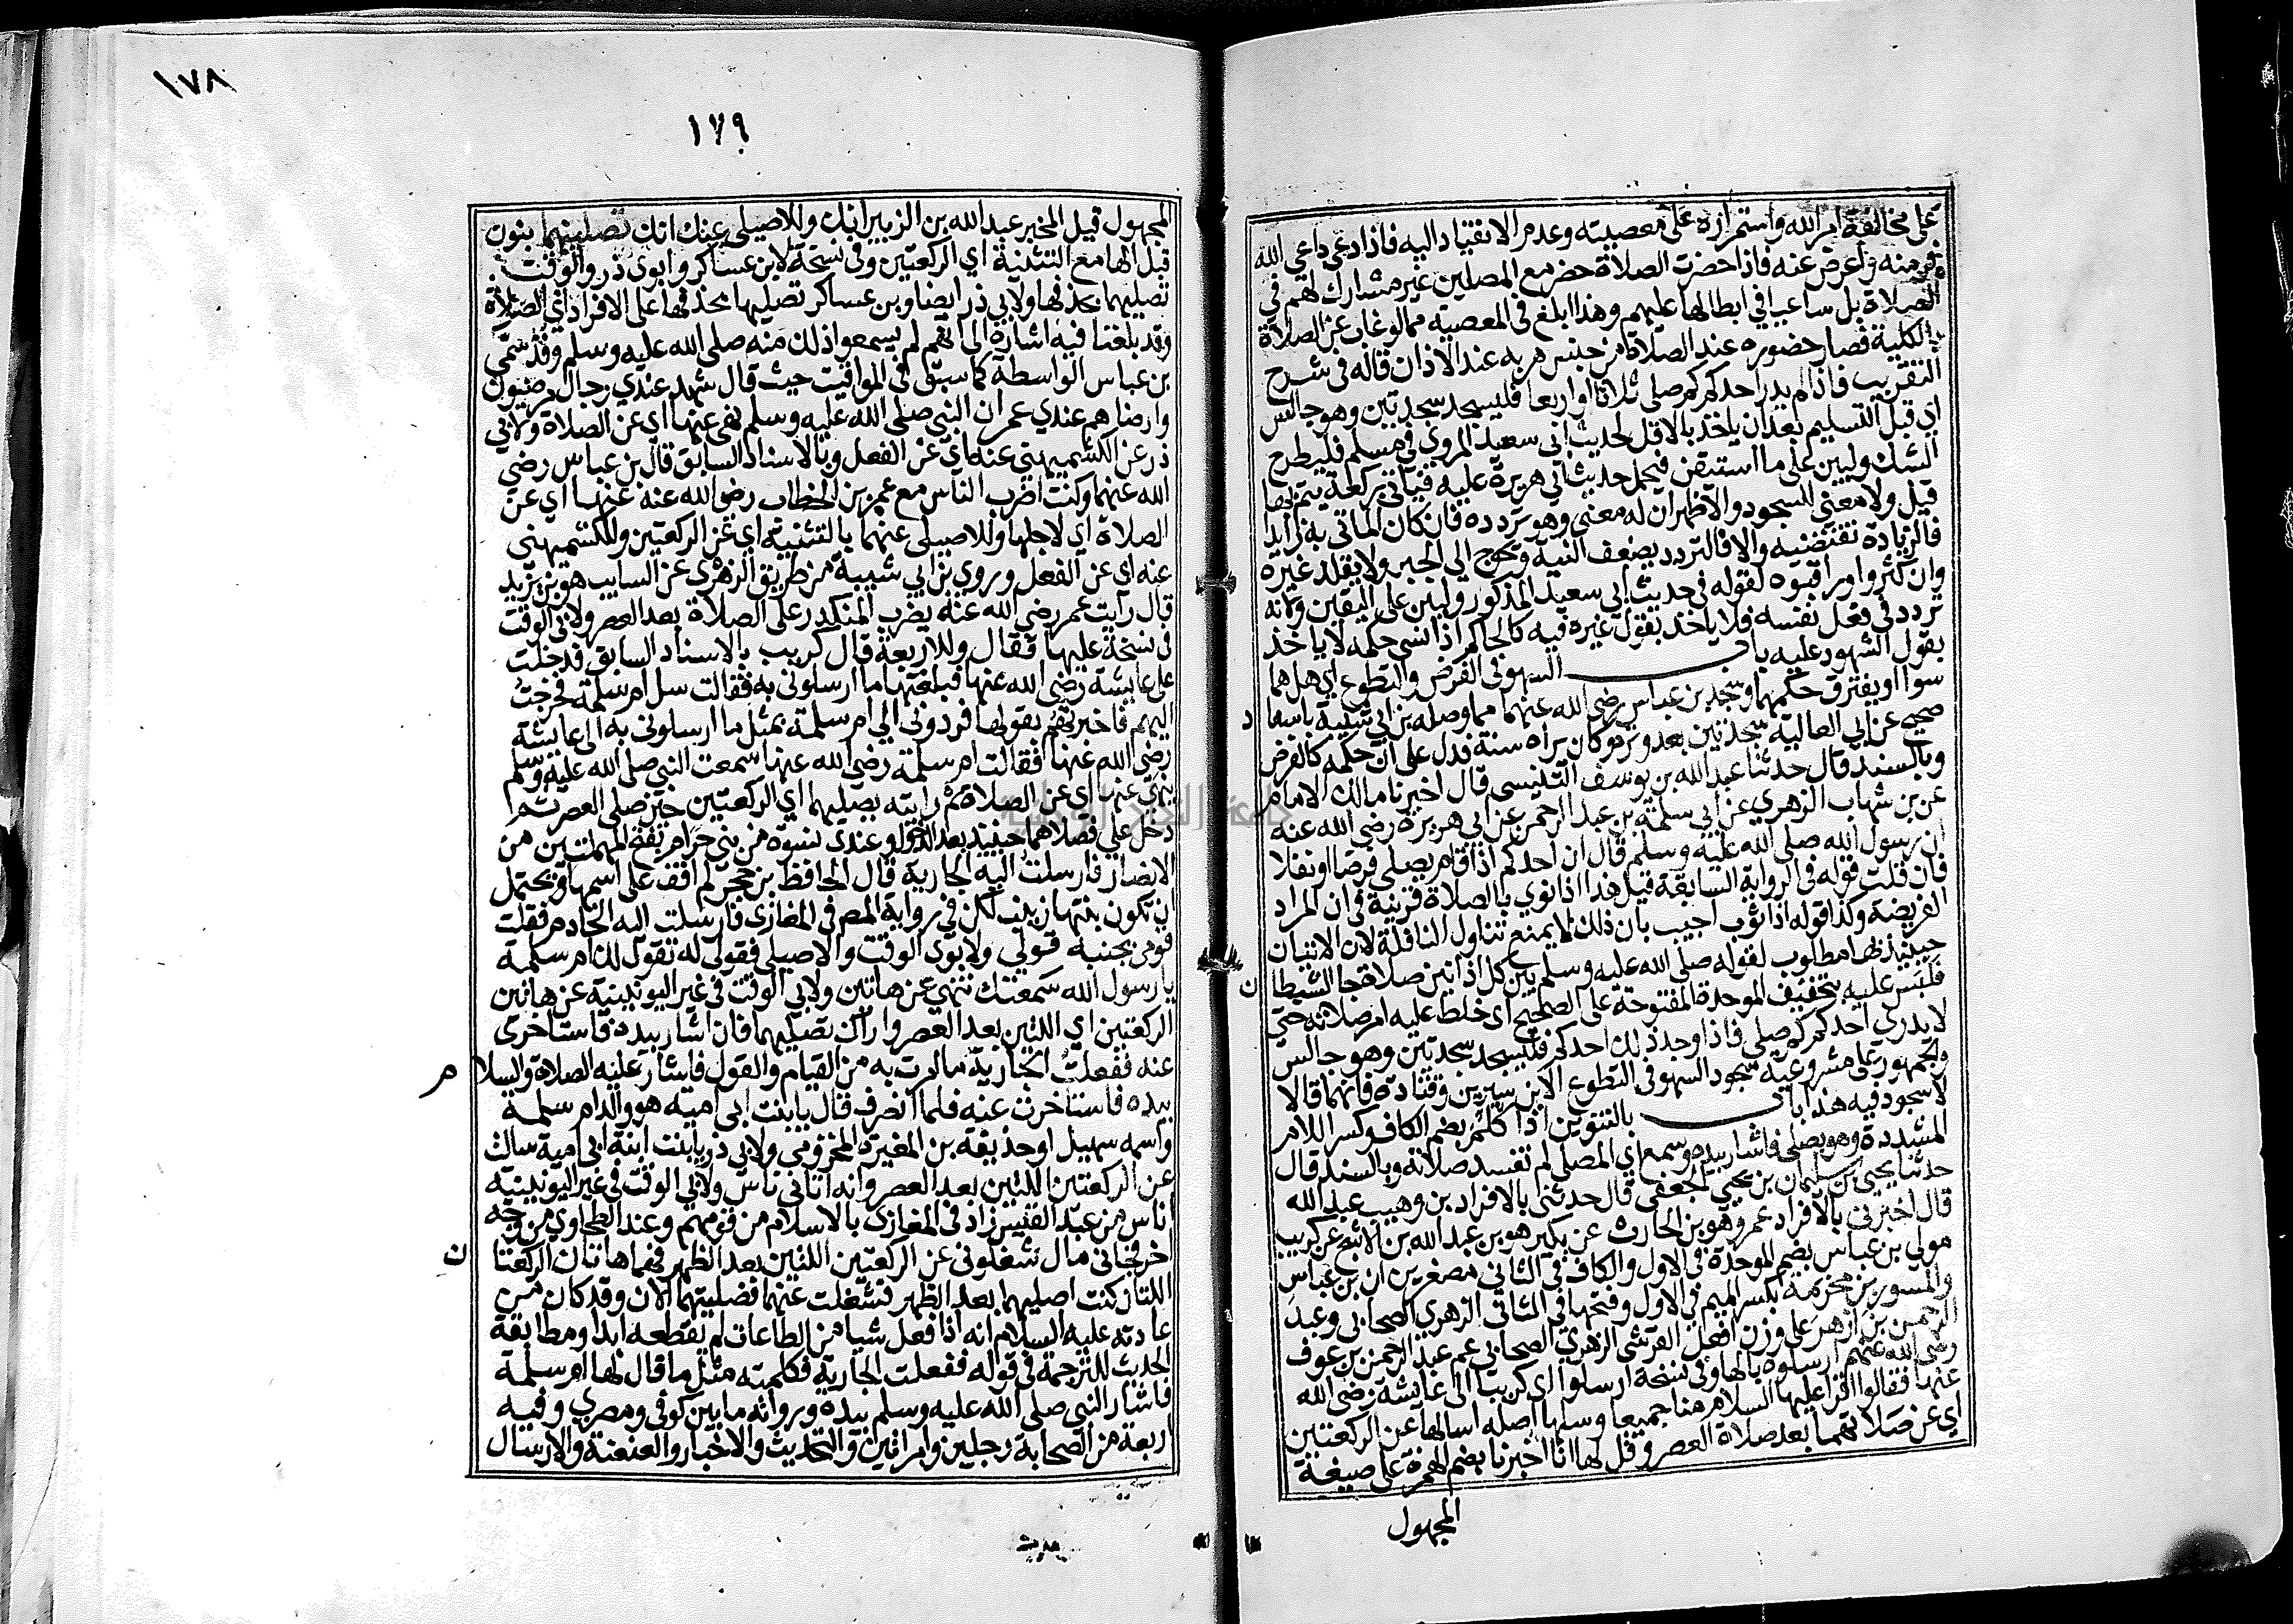 على مخالفة امر الله واستمراره على معصيته وعدم الانقياد اليه فاذا دعى داعي الله
فر منه واعرض عنه فاذا حضرت الصلاة حضر مع المصلين غير مشارك لهم في
الصلاة بل ساعيا في ابطالها عليهم وهذا ابلغ في المعصية مما لو غاب عن الصلاة
بالكلية فصار حضوره عند الصلاة من جنس هربه عند الاذان قاله في شرح
التقريب فاذا لم يدر احدكم كم صلى ثلاثا او اربعا فليسجد سجدتين وهو جالس
اي قبل التسليم بعد ان ياخذ بالاقل لحديث ابي سعيد المروي في مسلم فليطرح
الشك وليبن على ما استيقن فيحمل حديث ابي هريرة عليه فياتي بركعة يتم بها
قيل ولا معنى للسجود والاظهر ان له معنى وهو تردده فان كان الماتي به زايد
فالزيادة تقتضيه والا فالتردد يضعف النية ويحوج الى الجبر ولا يقلد غيره
وان كثروا وراقبوه لقوله في حديث ابي سعيد المذكور وليبن على اليقين ولانه
تردد في فعل نفسه فلا ياخذ بقول غيره فيه كالحاكم اذا نسي حكمه لا ياخذ
بقول الشهود عليه باب السهو في الفرض والتطوع اي هل هما
سوا او يفترق حكمهما وسجد بن عباس رضي الله عنهما مما وصله بن ابي شيبة باسناد
صحيح عن ابي العالية سجدتين بعد وتره وكان يراه سنة فدل على ان حكمه كالفرض
وبالسند قال حدثنا عبد الله بن يوسف التنيسي قال اخبرنا مالك الامام
عن بن شهاب الزهري عن ابي سلمة بن عبد الرحمن عن ابي هريرة رضي الله عنه
ان رسول الله صلى الله عليه وسلم قال ان احدكم اذا قام يصلي فرضا او نفلا
فان قلت قوله في الرواية السابقة قبل هذا اذا نوي بالصلاة قرينة في ان المراد
الفريضة وكذا قوله اذا ثوب اجيب بان ذلك لا يمنع تناول النافلة لان الاتيان
حينيذ بها مطلوب لقوله صلى الله عليه وسلم بين كل اذانين صلاة جا الشيطان
فلبس عليه بتخفيف الموحدة المفتوحة على الصحيح اي خلط عليه امر صلاته حتى
لا يدري احدكم كم صلى فاذا وجد ذلك احدكم فليسجد سجدتين وهو جالس
والجمهور على مشروعية سجود السهو في التطوع الا بن سيرين وقتادة فانهما قالا
لا سجود فيه هذا باب بالتنوين اذا كلم بضم الكاف وكسر اللام
المشددة وهو يصلي فاشار بيده وسمع اي المصلي لم تفسد صلاته وبالسند قال
حدثنا يحيى بن سليمان بن يحيى الجعفي قال حدثني بالافراد بن وهب عبد الله
قال اخبرني بالافراد عمرو هو بن الحارث عن بكير هو بن عبد الله بن الاشج عن كريب
مولى بن عباس بضم الموحدة في الاول والكاف في الثاني مصغرين ان بن عباس
والمسور بن مخرمة بكسر الميم في الاول وفتحها في الثاني الزهري الصحابي وعبد
الرحمن بن ازهر على وزن افعل القرشي الزهري الصحابي عم عبد الرحمن بن عوف
رضي الله عنهم ارسلوه بالها وفي نسخة ارسلوا اي كريبا الى عايشة رضي الله
عنها فقالوا اقرا عليها السلام منا جميعا وسلها اصله اسالها عن الركعتين
اي عن صلاتهما بعد صلاة العصر وقل لها انا اخبرنا بضم الهمزة على صيغة
المجهول
١٧٨
١٧٩
المجهول قيل المخبر عبد الله بن الزبير انك وللاصيلي عنك انك تصلينهما بنون
قبل الها مع التثنية اي الركعتين وفي نسخة لابن عساكر وابوي ذر والوقت
تصليهما بحذفها ولابي ذر ايضا وبن عساكر تصليها بحذفها على الافراد اي الصلاة
وقد بلغنا فيه اشارة الى انهم لم يسمعوا ذلك منه صلى الله عليه وسلم وقد سمى
بن عباس الواسطة كما سبق في المواقيت حيث قال شهد عندي رجال مرضيون
وارضاهم عندي عمر ان النبي صلى الله عليه وسلم نهى عنها اي عن الصلاة ولابي
ذر عن الكشميهني عنه اي عن الفعل وبالاسناد السابق قال بن عباس رضي
الله عنهما وكنت اضرب الناس مع عمر بن الخطاب رضي الله عنه عنها اي عن
الصلاة اي لاجلها وللاصيلي عنهما بالتثنية اي عن الركعتين وللكشميهني
عنه اي عن الفعل وروي بن ابي شيبة من طريق الزهري عن السايب هو بن يزيد
قال رايت عمر رضي الله عنه يضرب المنكدر على الصلاة بعد العصر ولابي الوقت
في نسخة عليها فقال وللاربعة قال كريب بالاسناد السابق فدخلت
على عايشة رضي الله عنها فبلغتها ما ارسلوني به فقالت سل ام سلمة فخرجت
اليهم فاخبرتهم بقولها فردوني الى ام سلمة بمثل ما ارسلوني به الى عايشة
رضي الله عنها فقالت ام سلمة رضي الله عنها سمعت النبي صلى الله عليه وسلم
ينهى عنها اي عن الصلاة ثم رايته يصليهما اي الركعتين حين صلى العصر ثم
دخل علي فصلاهما حينيذ بعد الدخول وعندي نسوة من بني حرام بفتح المهملتين من
الانصار فارسلت اليه الجارية قال الحافظ بن حجر لم اقف على اسمها ويحتمل
ان تكون بنتها زينب لكن في رواية المص في المغازي فارسلت اليه الخادم فقلت
قومي بجنبه قولي ولابوي الوقت والاصيلي فقولي له تقول لك ام سلمة
يا رسول الله سمعتك تنهى عن هاتين ولابي الوقت في غير اليونينية عن هاتين
الركعتين اي اللتين بعد العصر واراك تصليهما فان اشار بيده فاستاخري
عنه ففعلت الجارية ما امرت به من القيام والقول فاشار عليه الصلاة والسلام
بيده فاستاخرت عنه فلما انصرف قال يا بنت ابي امية هو والد ام سلمة
واسمه سهيل او حذيفة بن المغيرة المخزومي ولابي ذر يا بنت ابنة ابي امية سالت
عن الركعتين اللتين بعد العصر وانه اتاني ناس ولابي الوقت في غير اليونينية
اناس من عبد القيس زاد في المغازي بالاسلام من قومهم وعند الطحاوي من وجه
اخر فجاني مال شغلوني عن الركعتين اللتين بعد الظهر فهما هاتان الركعتان
اللتان كنت اصليهما بعد الظهر فشغلت عنهما فصليتهما الان وقد كان من
عادته عليه السلام انه اذا فعل شيا من الطاعات لم يقطعه ابدا ومطابقة
الحديث للترجمة في قوله ففعلت الجارية فكلمته مثل ما قال لها ام سلمة
فاشار النبي صلى الله عليه وسلم بيده ورواته ما بين كوفي ومصري وفيه
اربعة من الصحابة رجلين وامراتين والتحديث والاخبار والعنعنة والارسال